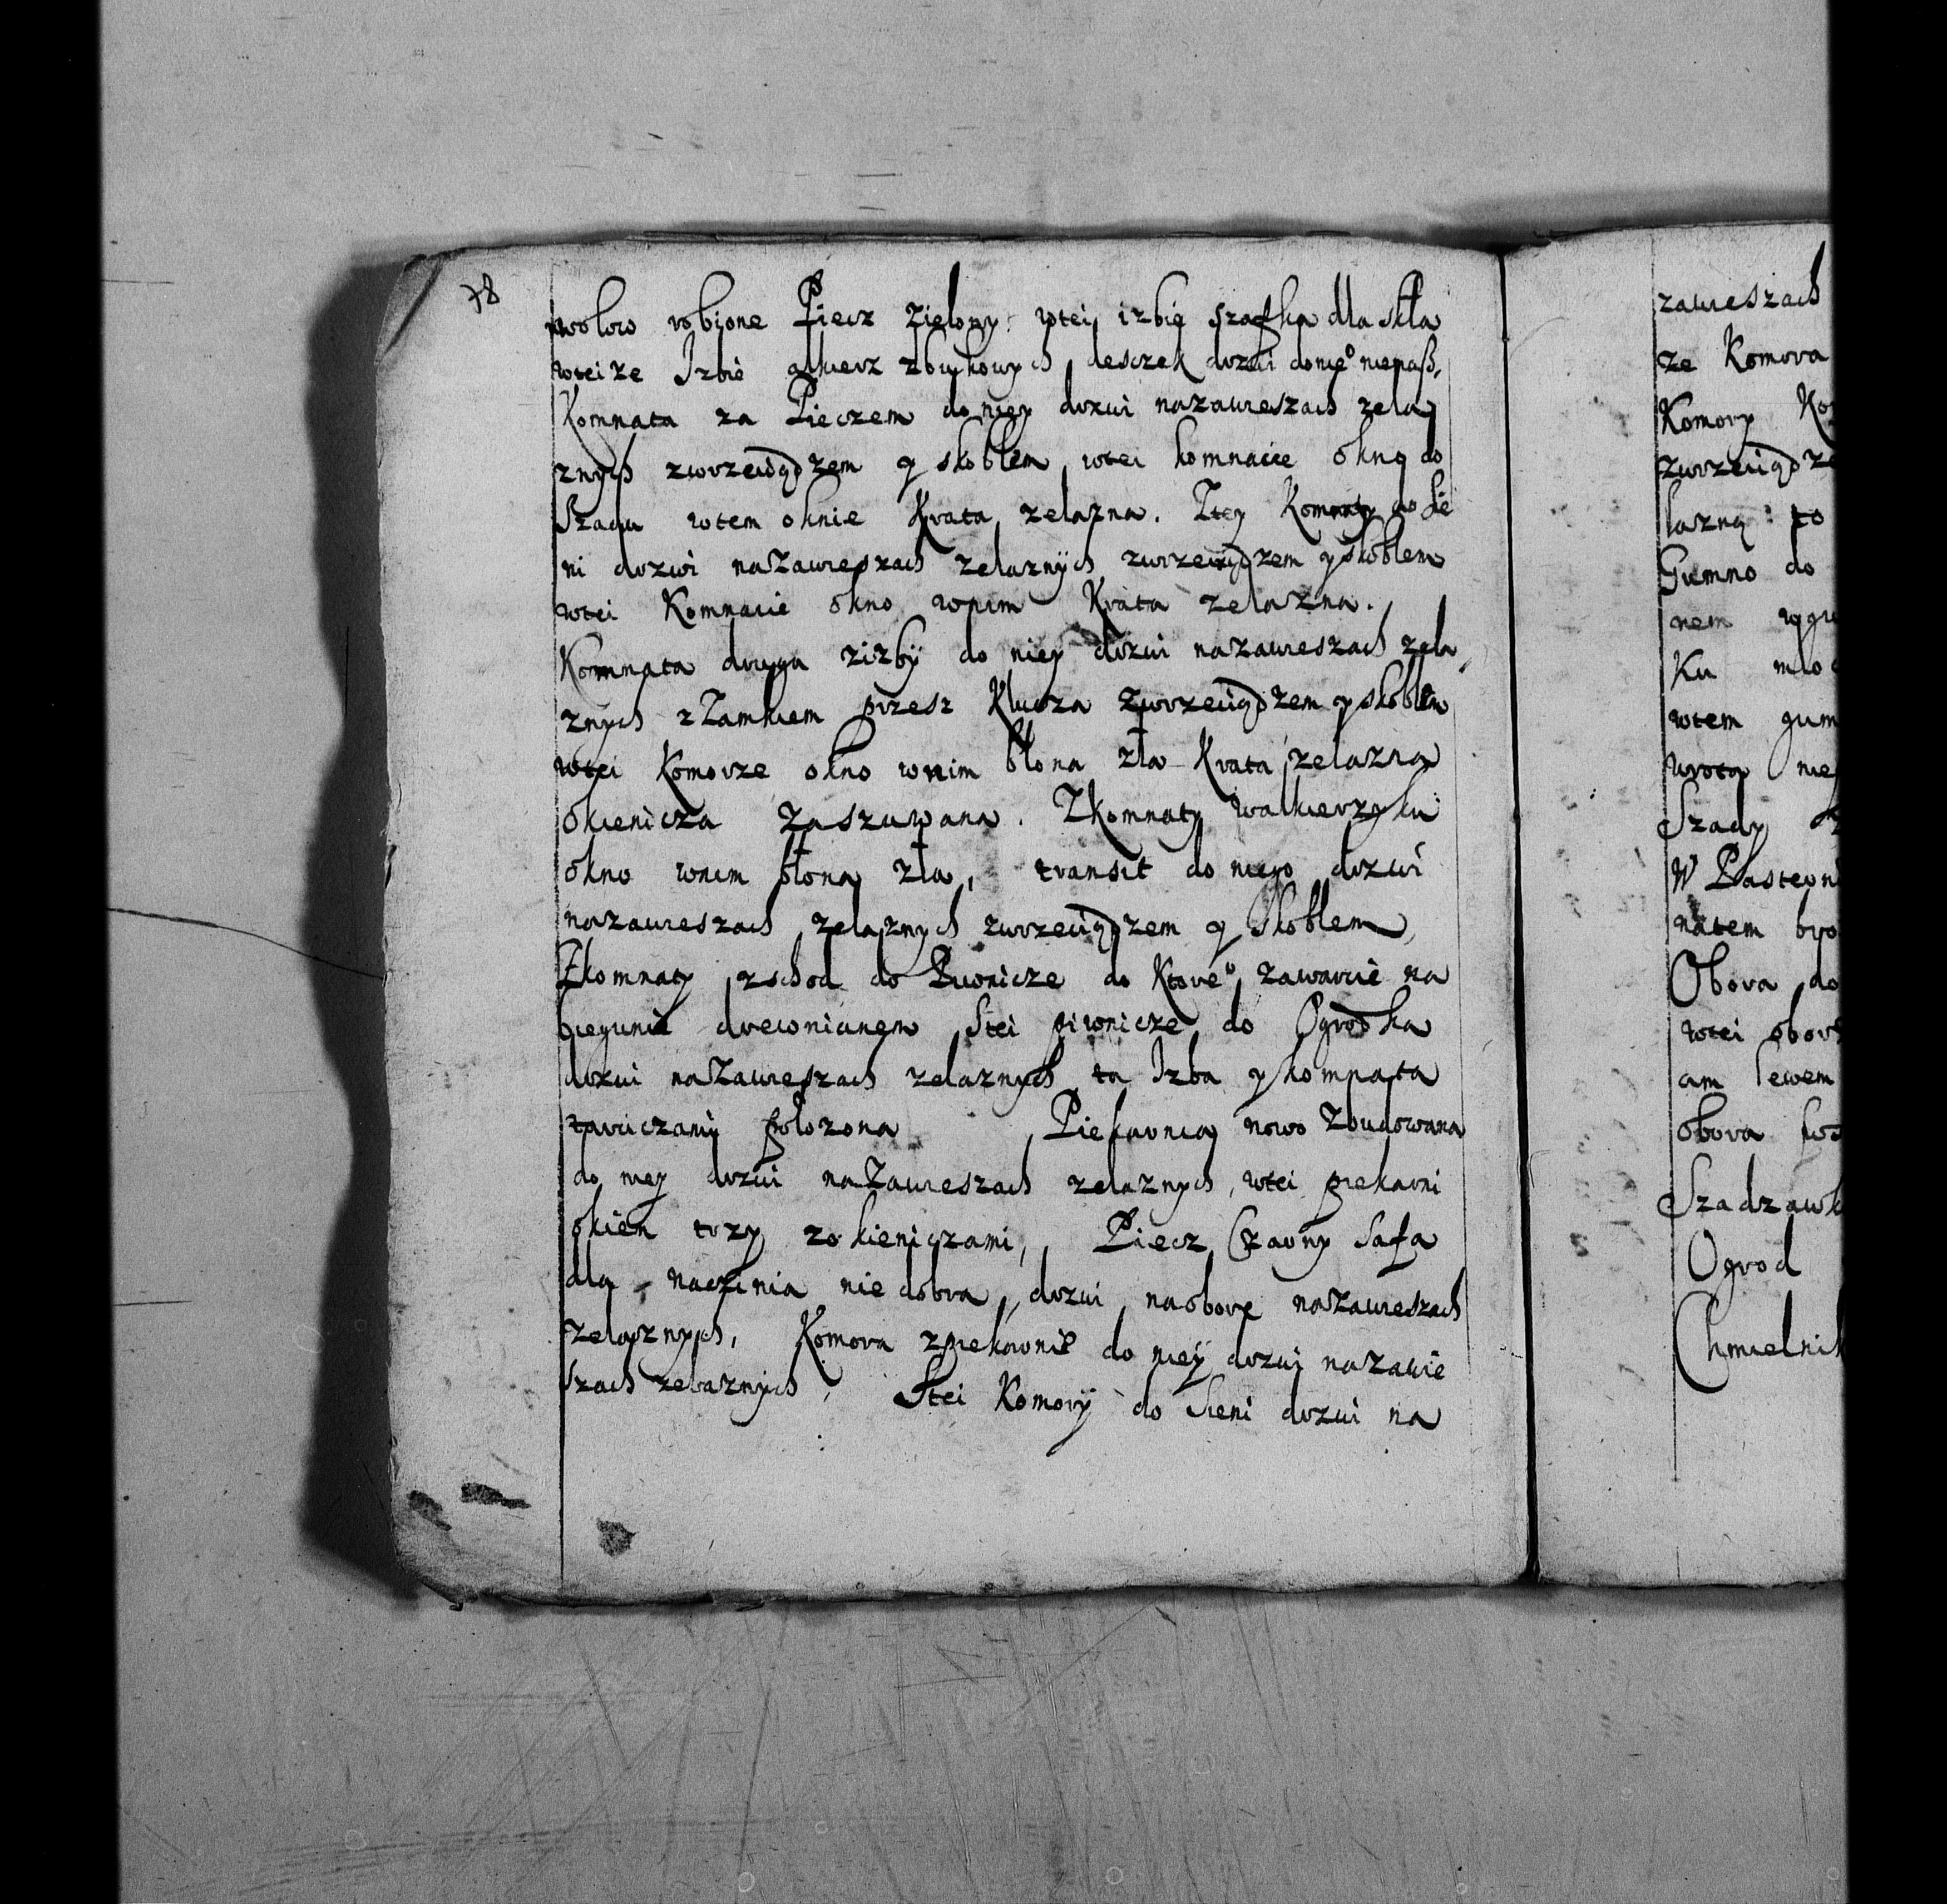 78
wolow robione Piecz Zielony wtei izbie szafka dla skła
wtei ze Izbie alkierz zbukowych desczek drzwi donie° niemasz,
Komnata za Pieczem do niey drzwi nazawieszach zela
znych zwrzeciądzem y skoblem wtei komnacie okno do
Szadu wtem oknie Krata zelazna. Ztey Komnaty do Sie
ni drzwi nazawieszach zelaznych zwrzeciądzem y skoblem
wtei Komnacie okno wnim Krata zelazna.
Komnata druga zizby do niey drzwi nazawieszach zela
znych zZamkiem przesz Klucza zwrzeciądzem y skoblem
wtei Komorze okno wnim błona zła Krata zelazna
okienicza Zaszuwana. Zkomnaty walkierzyku
okno wnim błona zła, transit do niego drzwi
nazawieszach zelaznych zwrzeciądzem y skoblem,
Zkomnaty zschod do Piwnicze do Ktore° zawarcie na
biegunie drewnianem Stei piwnicze do Ogrodka
drzwi nazawieszach zelaznych ta Izba y komnata
tarciczami położona Piekarnia nowo Zbudowana
do niey drzwi nazawieszach zelaznych, wtei piekarni
okien trzy zokieniczami, Piecz Czarny Safa
dla naczinia nie dobra, drzwi naobore nazawieszach
zelaznych, Komora zpiekarnie do niey drzwi nazawie
szach zelaznych, Stei Komory do Sieni drzwi na
zawieszach
ze Komora
Komory
zwrzeciądze
lazną to
Gumno do
nem
Ku
wtem gum
wrota
Szady
W
natem
Obora do
wtei obor
am lewem
obora
Szadzawk
Ogrod
Chmielnik